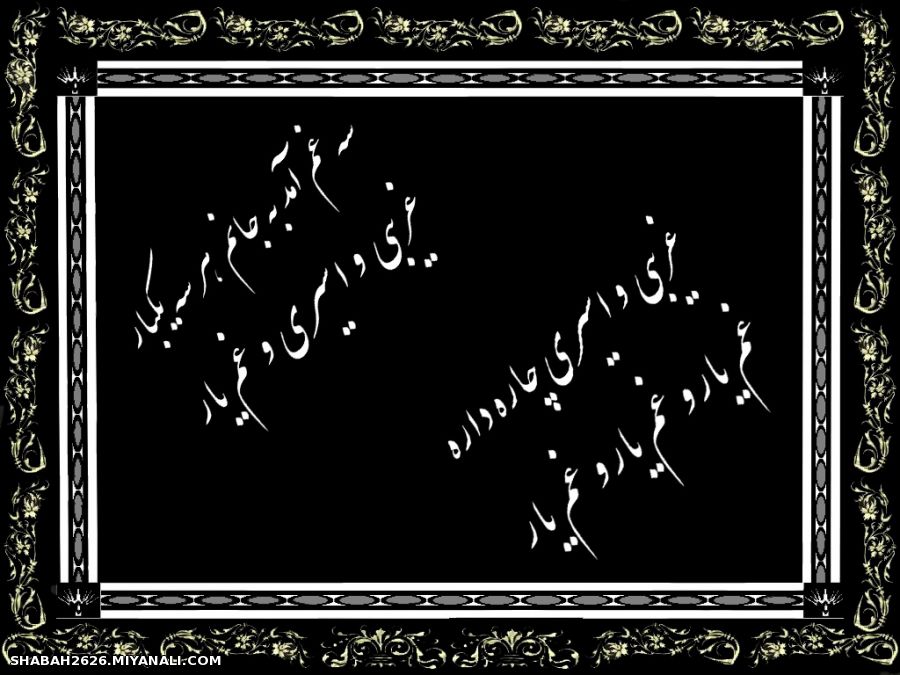 سه غم آمد به جانم هر سه یکبار
غریبی و اسیری و غم یار
غریبی و اسیری چاره داره
غم یار و غم یار و غم یار
SHABAH2626.MIYANALI.COM